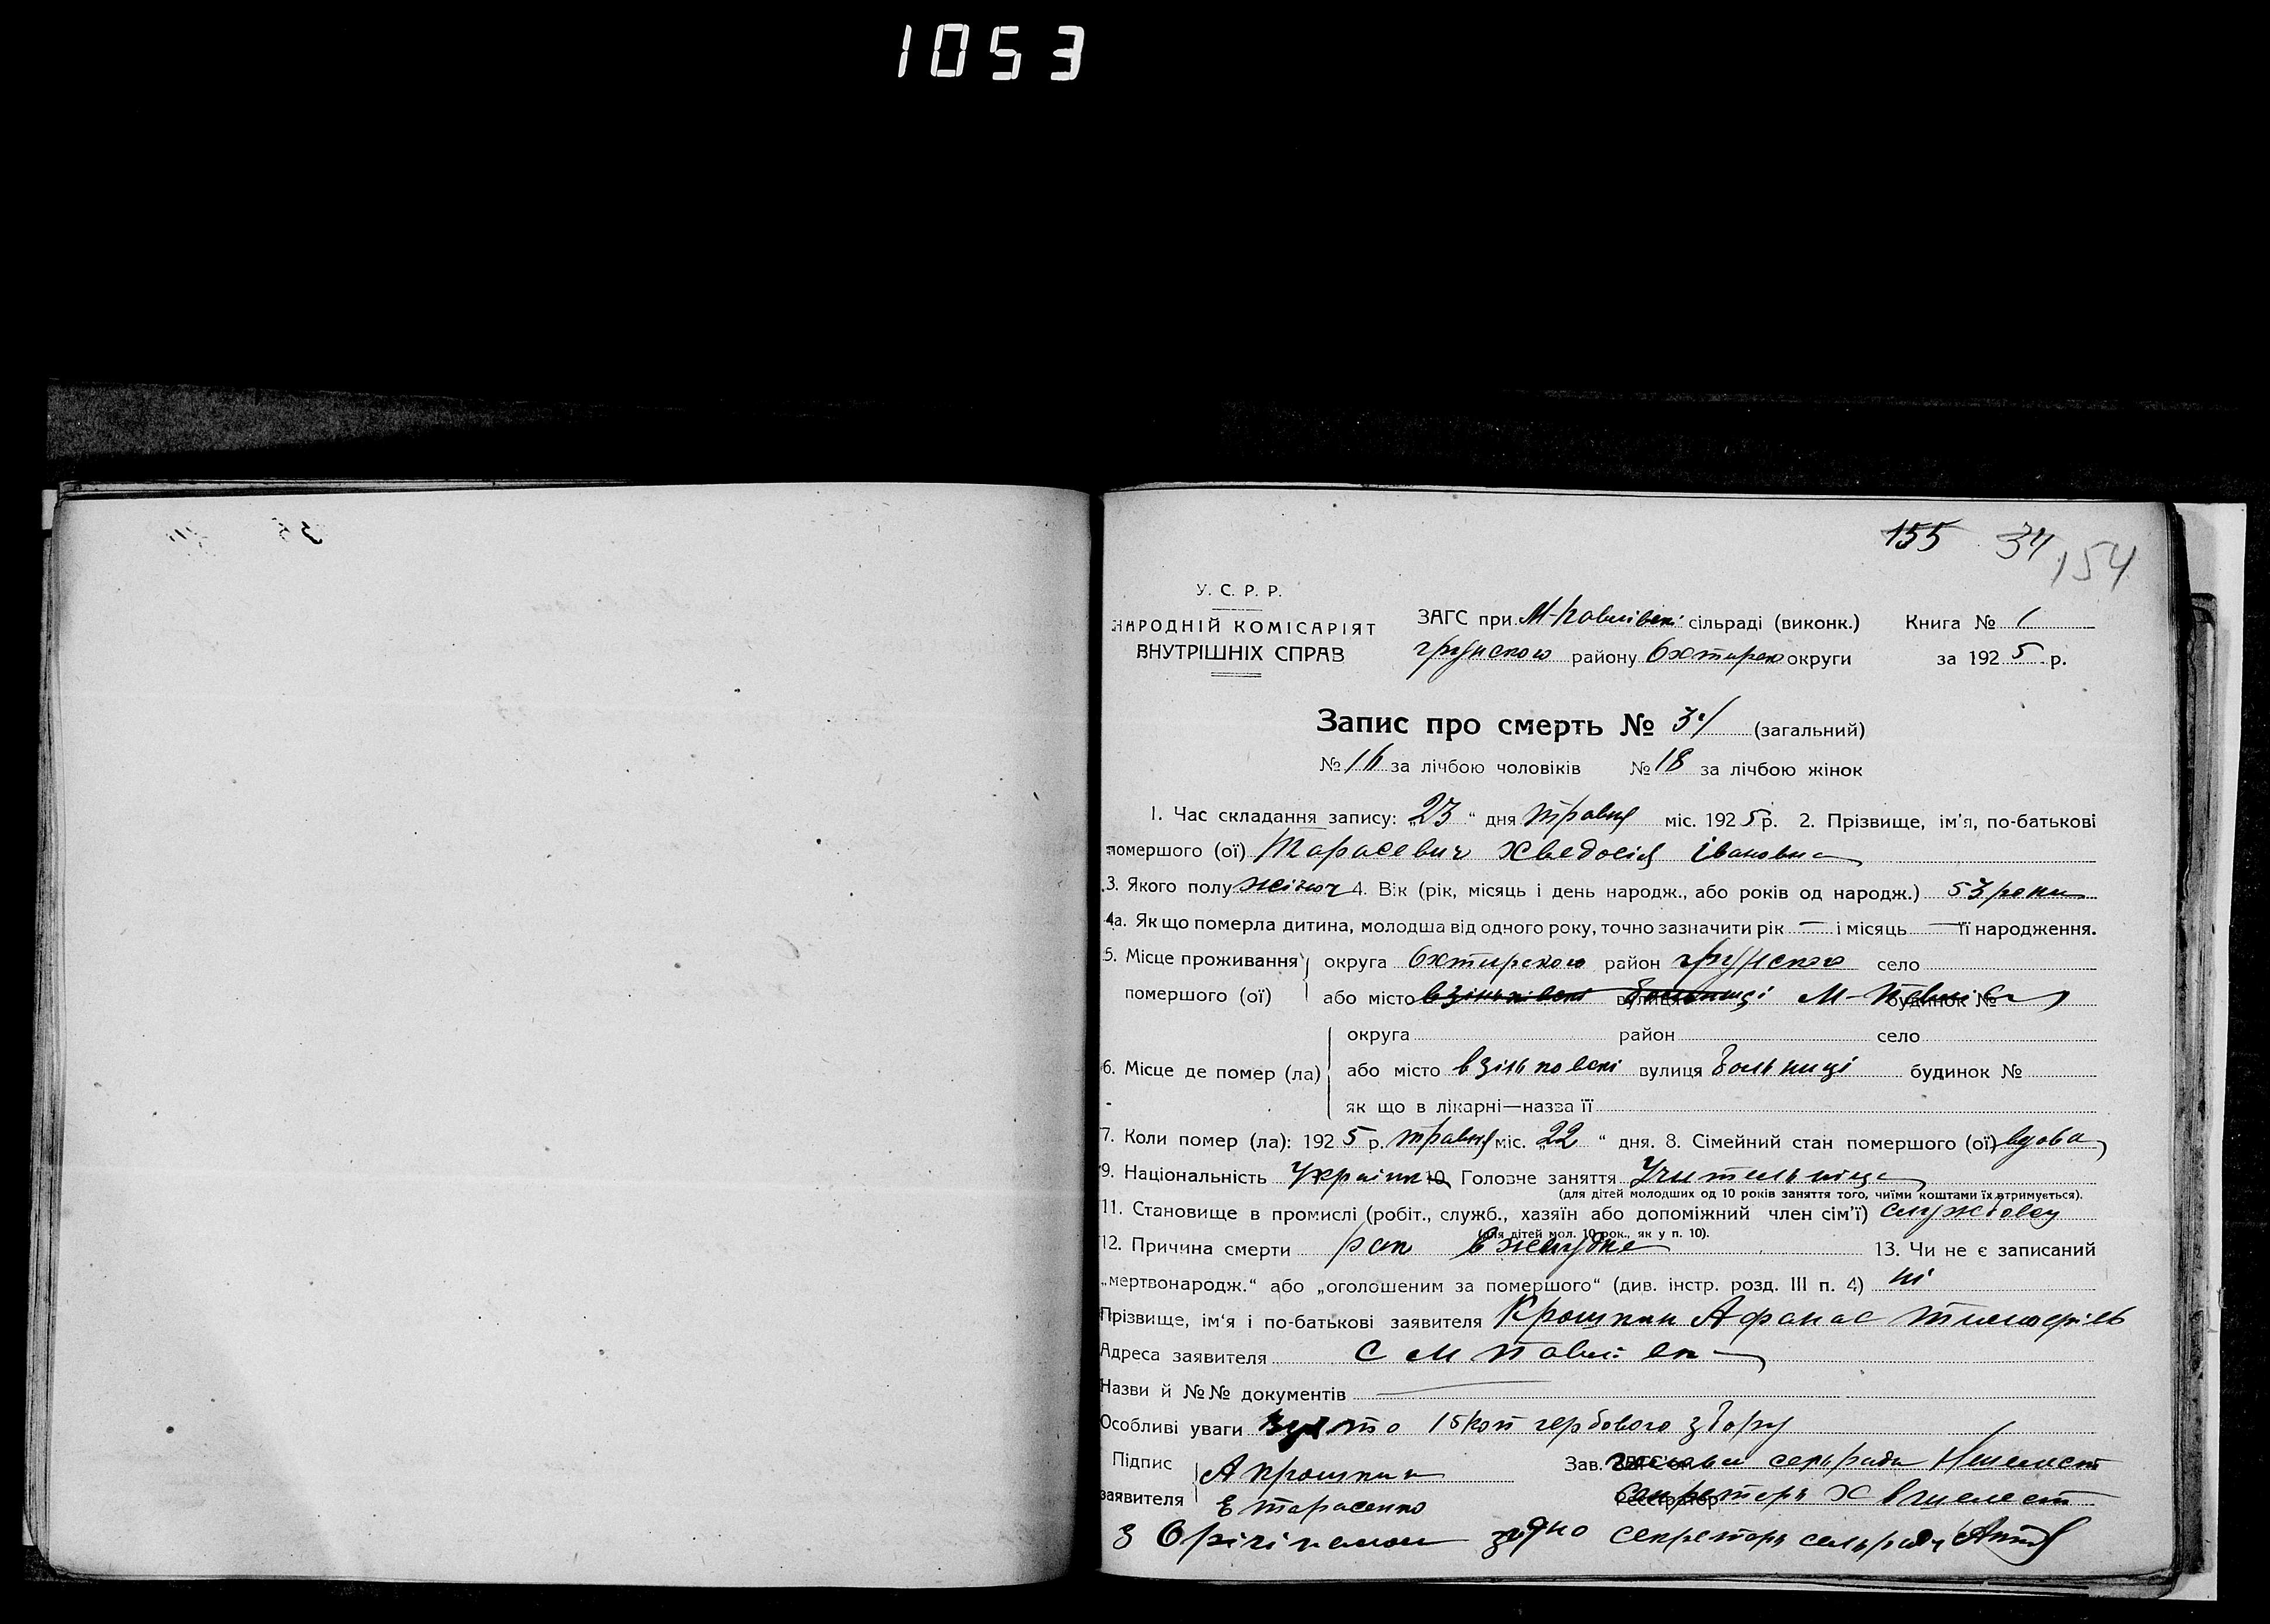 1053
155 34 154
У. С. Р. Р.
НАРОДНІЙ КОМІСАРІЯТ
ВНУТРІШНІХ СПРАВ
ЗАГС при М-Павлівскі сільраді (виконк.) Книга № 1
грунского району Охтирско округи за 1925 р.
Запис про смерть № 34 (загальний)
№ 16 за лічбою чоловіків № 18 за лічбою жінок
1. Час складання запису: „23“ дня травня міс. 1925 р. 2. Прізвище, ім'я, по-батькові
помершого (ої) Тарасевич Хведосія Івановна
3. Якого полу жіноч 4. Вік (рік, місяць і день народж., або років од народж.) 53 роки
4а. Як що померла дитина, молодша від одного року, точно зазначити рік — і місяць — її народження.
5. Місце проживання округа Охтирского район грунского село
помершого (ої) або місто взіньківскі вулиця больниці М-Павлівка будинок №
округа район село
6. Місце де помер (ла) або місто взіньковскі вулиця больниці будинок №
як що в лікарні—назва її
7. Коли помер (ла): 1925 р. травня міс. „22“ дня. 8. Сімейний стан помершого (ої) вдова
9. Національність Українк 10. Головче заняття Учительница
(для дітей молодших од 10 років заняття того, чиїми коштами їх втримується).
11. Становище в промислі (робіт., служб., хазяїн або допоміжний член сім'ї) службовец
(для дітей мол. 10 рок., як у п. 10).
12. Причина смерти рак в желудке 13. Чи не є записаний
„мертвонародж.“ або „оголошеним за помершого“ (див. інстр. розд. III п. 4) ні
Прізвище, ім'я і по-батькові заявителя Крошкин Афанас
Адреса заявителя С М Павлівк
Назви й №№ документів —
Особливі уваги взято 15 коп гербового збору
Підпис А Крошкин Зав. ЗАГС'ом голова сельради Шелест
заявителя Е Тарасенко Реєстратор секретарь Х Шелест
З Орігіналом згідно секретарь сельради